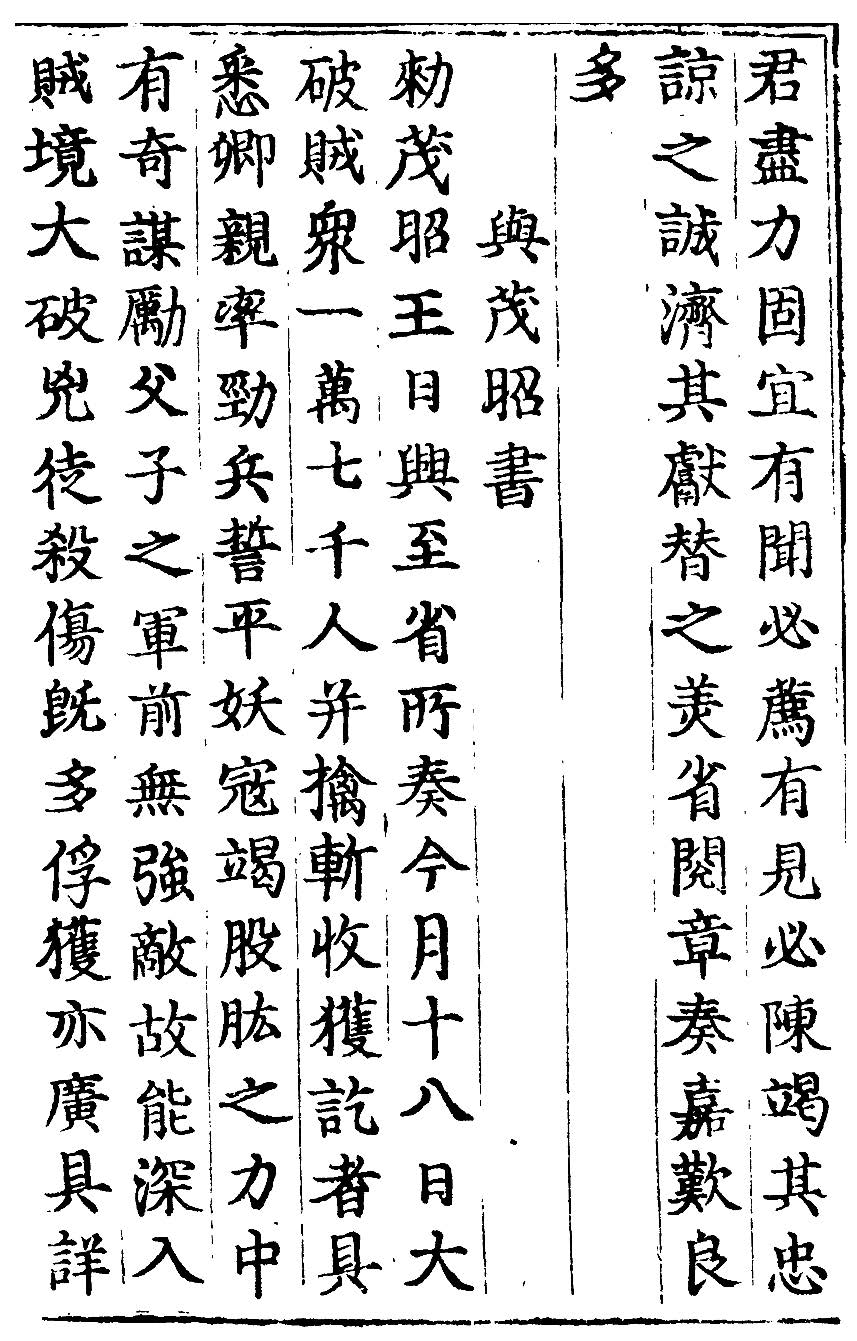 君盡力固宜有聞必薦有見必陳竭其忠
諒之誠濟其獻替之美省閱章奏嘉歎良
多
與茂昭書
勑茂昭王日興至省所奏今月十八日大
破賊衆一萬七千人并擒斬收獲訖者具
悉卿親率勁兵誓平妖寇竭股肱之力中
有奇謀勵父子之軍前無強敵故能深入
賊境大破兇徒殺傷旣多俘獲亦廣具詳